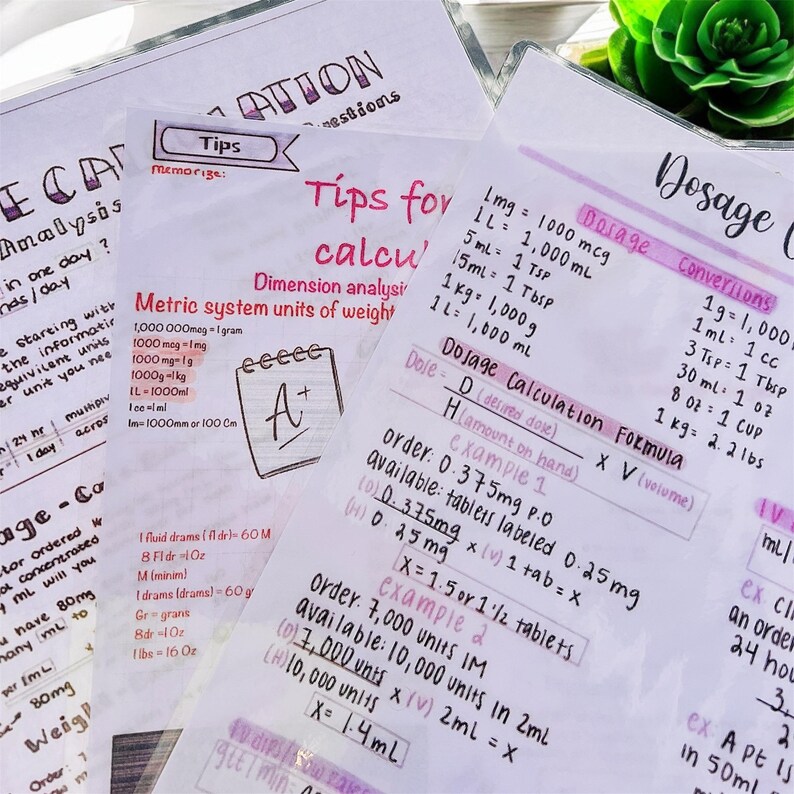 Questions
Analysis
in one day ?
/day
starting with
the information
equivilent units
unit you need
24 hr
multiply
1 day
ordered
concentrated
mL will you
have 80mg
many mL to
per 1mL
80mg
Weigh
order:
Tips
memorize:
Tips for
calcu
Dimension analysis
Metric system units of weight
1,000 000mcg = 1 gram
1000 mcg = 1 mg
1000 mg= 1 g
1000g =1kg
1 L = 1000ml
1 cc =1 ml
1m= 1000mm or 100 Cm
A+
1 fluid drams ( fl dr)= 60 M
8 Fl dr =1 Oz
M (minim)
1 drams (drams) = 60 gr
Gr = grans
8dr =1 Oz
1 lbs = 16 Oz
Dosage C
Dosage Convertions
1mg = 1000 mcg
1 L = 1,000 mL
5 mL = 1 TSP
15mL = 1 Tbsp
1 kg = 1,000g
1 L = 1,000 mL
1g = 1,000
1 mL = 1 cc
3 Tsp = 1 Tbsp
30 mL = 1 oz
8 oz = 1 cup
1 kg = 2.2 lbs
Dosage Calculation Formula
Dose = D (desired dose)
H (amount on hand) x V (volume)
example 1
order: 0.375mg p.o
available: tablets labeled 0.25mg
(D) 0.375mg
(H) 0.25mg x (V) 1 tab = x
X = 1.5 or 1 1/2 tablets
example 2
order: 7,000 units IM
available: 10,000 units in 2mL
(D) 7,000 units
(H) 10,000 units x (V) 2mL = x
X= 1.4mL
gtt/min=
IV
mL/
ex:
an order
24 hou
3,
2
ex: A pt is
in 50mL